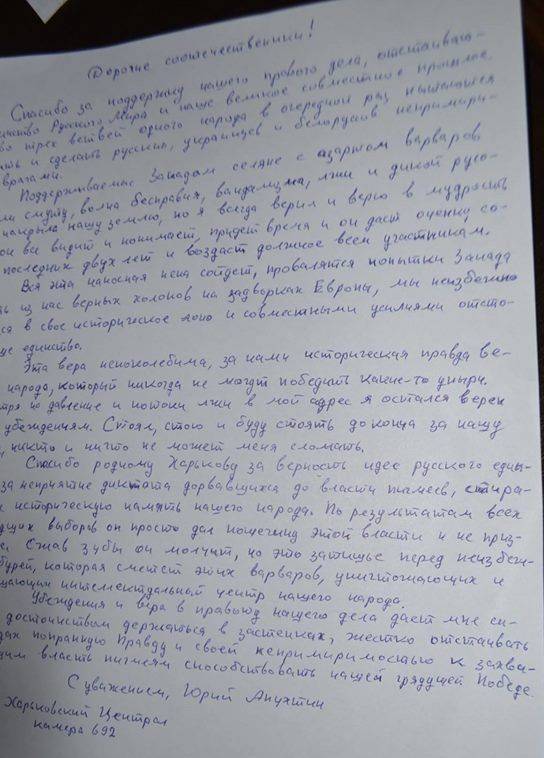 Дорогие соотечественники!
Спасибо за поддержку нашего правого дела, отстаиваю-
инство Русского Мира и наше великое совместное прошлое.
во трех ветвей одного народа в очередной раз пытающиеся
ить и сделать русских, украинцев и белорусов непримири-
врагами.
Поддерживаемые Западом селяне с азартом варваров
ли смуту, волна бесправия, вандализма, лжи и дикой русо-
накрыла нашу землю, но я всегда верил и верю в мудрость
он все видит и понимает, придет время и он даст оценку со-
последних двух лет и воздаст должное всем участникам.
Вся эта наносная пена сойдет, провалятся попытки Запада
ть из нас верных холопов на задворках Европы, мы неизбежно
ся в свое историческое лоно и совместными усилиями отсто-
ше единство.
Эта вера непоколебима, за нами историческая правда ве-
народа, который никогда не могут победить какие-то упыри.
тря на давление и потоки лжи в мой адрес я остался верен
убеждениям. Стоял, стою и буду стоять до конца за нашу
, никто и ничто не может меня сломать.
Спасибо родному Харькову за верность идее русского един-
за неприятие диктата дорвавшихся до власти пигмеев, стира-
х историческую память нашего народа. По результатам всех
дущих выборов он просто дал пощечину этой власти и не приз-
е. Сжав зубы он молчит, но это затишье перед неизбеж-
бурей, которая сметет этих варваров, уничтожающих и
щающих интеллектуальный центр нашего народа.
Убеждения и вера в правоту нашего дела дает мне си-
достоинством держаться в застенках, жестко отстаивать
дах попранную Правду и своей непримиримостью к захва-
шим власть пигмеям способствовать нашей грядущей Победе.
С уважением, Юрий Апухтин
Харьковский Централ
камера 692